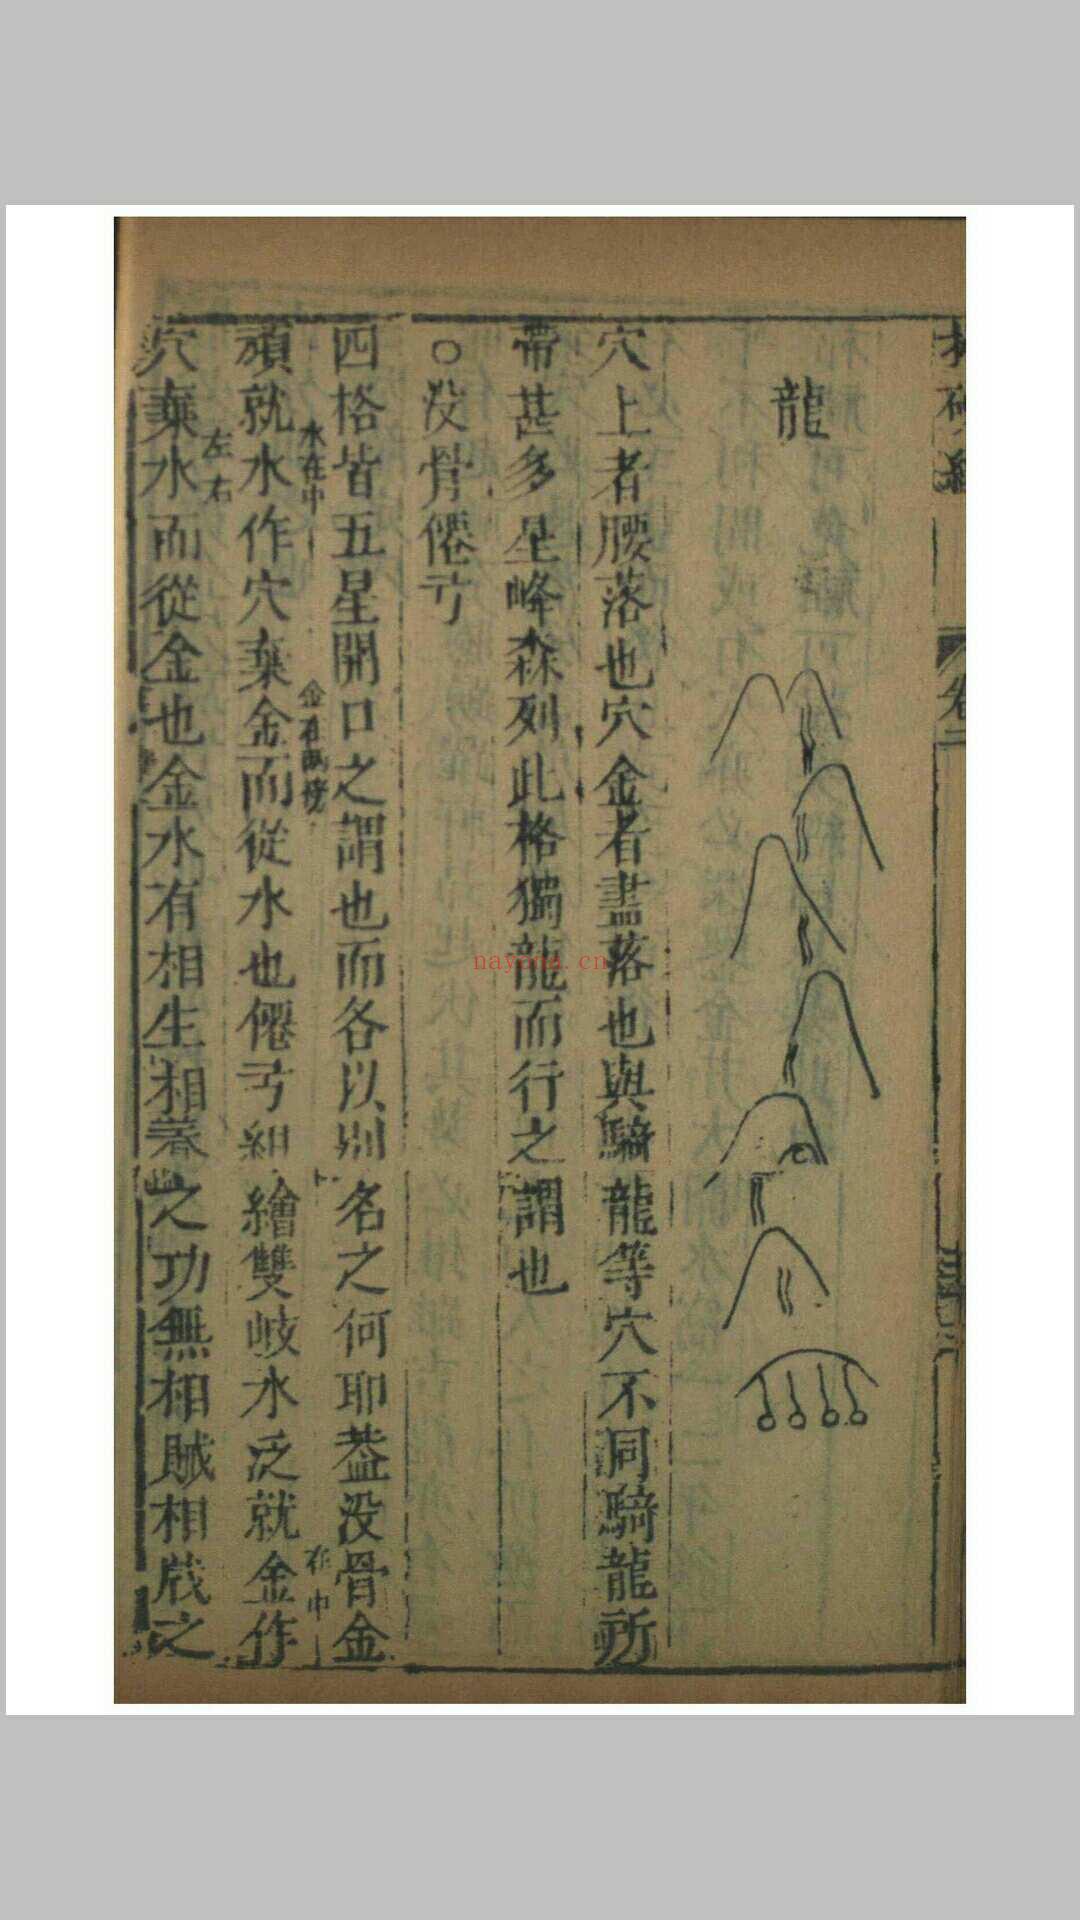 卷二
龍
穴上者腰落也穴金者盡落也與騎龍等穴不同騎龍所
帶甚多星峰森列此格獨龍而行之謂也
○没骨僊亐
四格皆五星開口之謂也而各以别名之何耶葢没骨金
水在中 金在兩傍 在中
頑就水作穴棄金而從水也僊亐組繒雙岐水泛就金作
左右
穴棄水而從金也金水有相生相養之功無相賊相戕之
nayona.cn